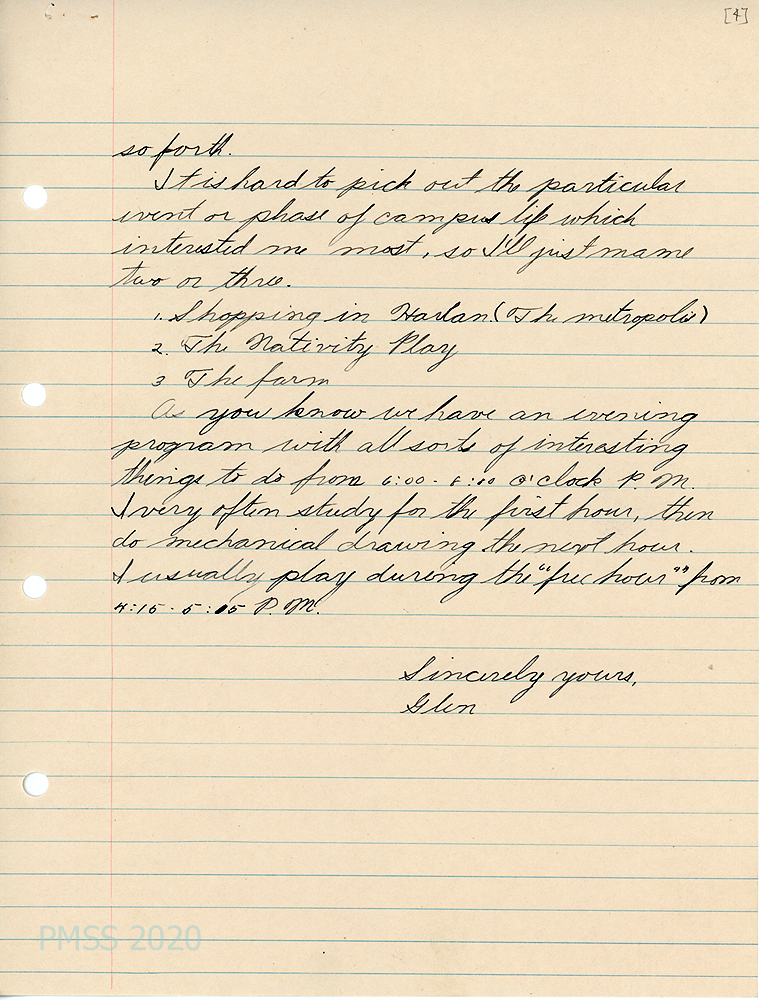 [4]
so forth.
It is hard to pick out the particular
event or phase of campus life which
interested me most, so I'll just name
two or three.
1. Shopping in Harlan. (The metropolis)
2. The Nativity Play
3 The farm
As you know we have an evening
program with all sorts of interesting
things to do from 6:00 - 8:00 o'clock P. M.
I very often study for the first hour, then
do mechanical drawing the next hour.
I usually play during the "free hour" from
4:15 - 5:05 P. M.
Sincerely yours,
Glen
PMSS 2020